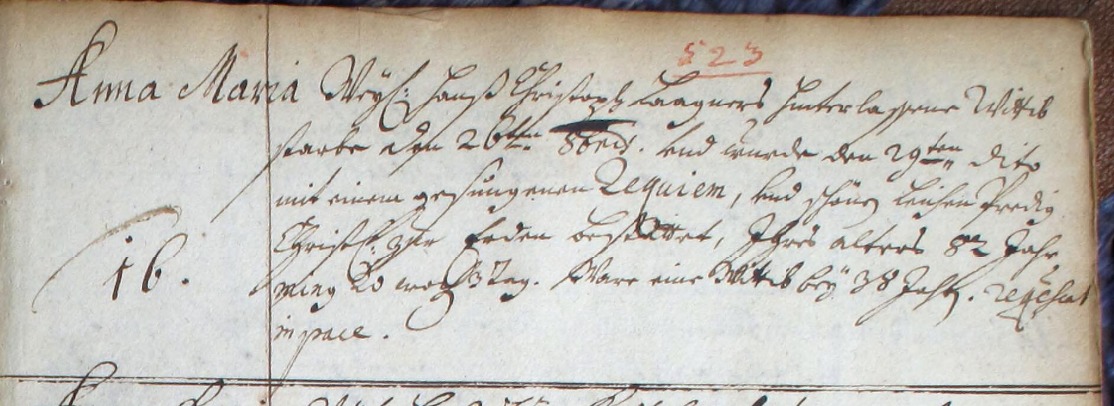 523
Anna Maria Weyl: Hanß Christoph Laagners hinterlassene Wittib
starbe den 26ten 8bris. und wurde den 29ten dito
mit einem gesungenen Requiem, und schöner leichen Predig
Christl: zur Erden bestättet, Ihres alters 82 Jahr
16.
wenig 20 woch 3 Tag. Ware eine Wittib bey 38 Jahr. requiescat
in pace.